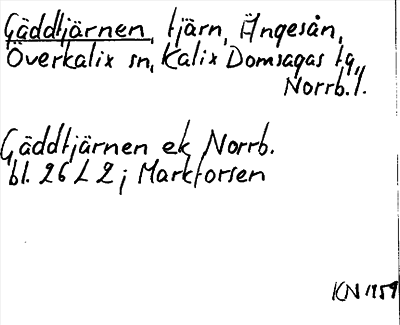 Gäddtjärnen, tjärn, Ängesån,
Överkalix sn, Kalix Domsagas tg,
Norrb. l.
Gäddtjärnen ek Norrb.
bl. 26 L 2; Markforsen
KN 1959